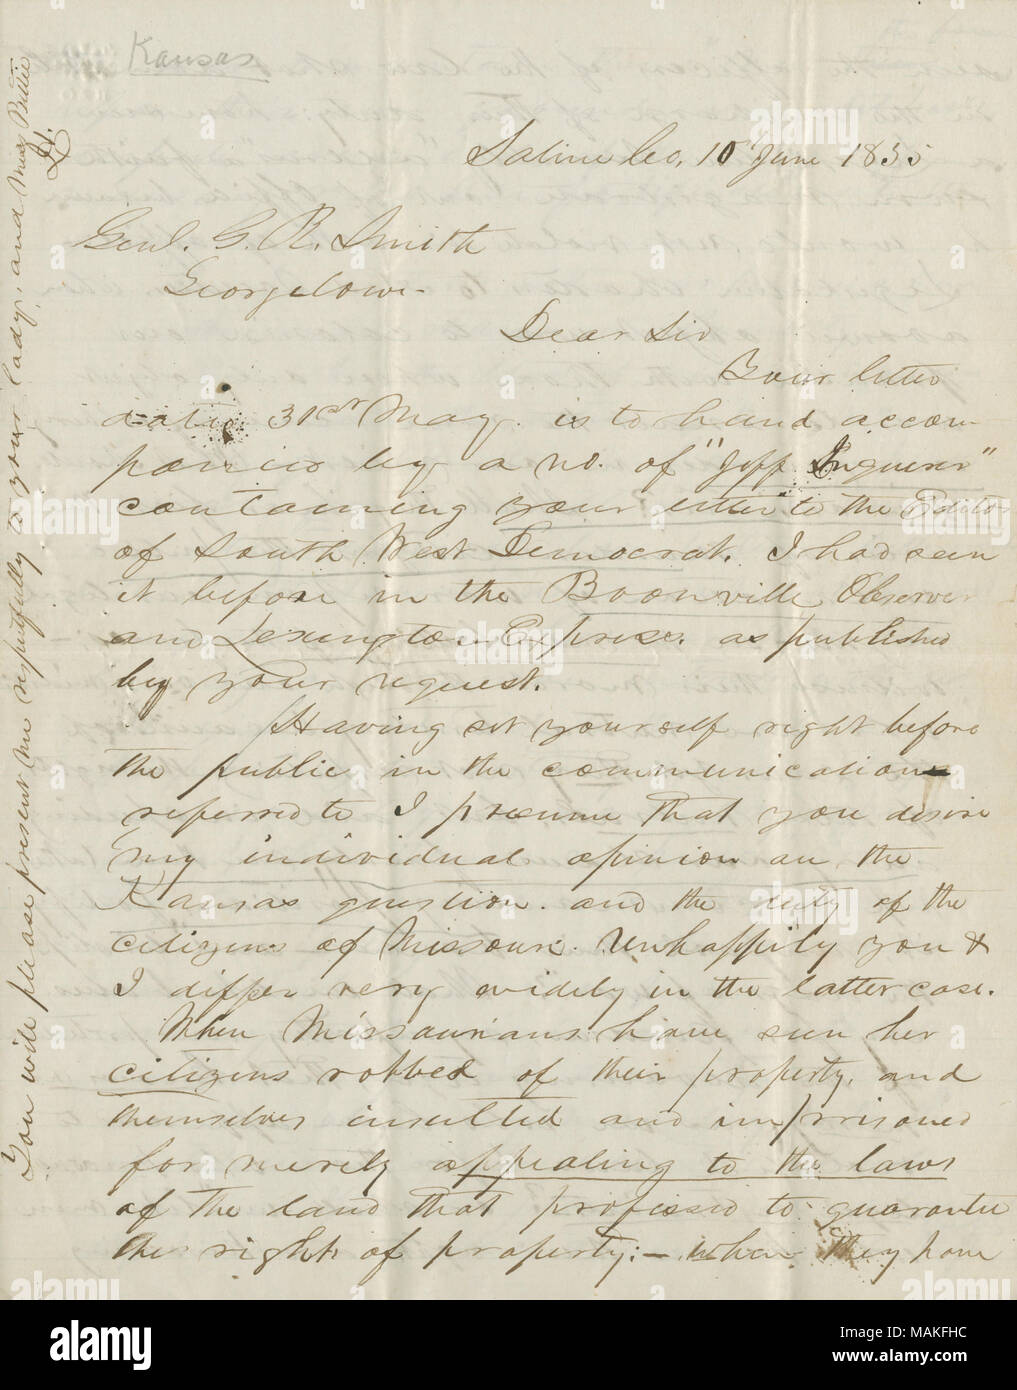 Kansas
Saline Co, 10 June 1855
Genl. G. R. Smith
Georgetown
Dear Sir
Your letter
31st May is to hand accom-
panied by a no. of "Jeff Inquirer"
containing your letter to the Editor
of South West Democrat. I had seen
it before in the Boonville Observer
and Lexington Express. as published
by your request.
Having set yourself right before
the public in the communication
referred to I presume that you desire
my individual opinion on the
Kansas question. and the duty of the
citizens of Missouri. Unhappily you &
I differ very widely in the latter case.
When Missourians have seen her
citizens robbed of their property, and
themselves insulted and imprisoned
for merely appealing to the laws
of the land that professed to guarantee
the rights of property:- when they have
You will please present me respectfully to your lady, and Miss
alamy
Image ID: MAKFHC
www.alamy.com